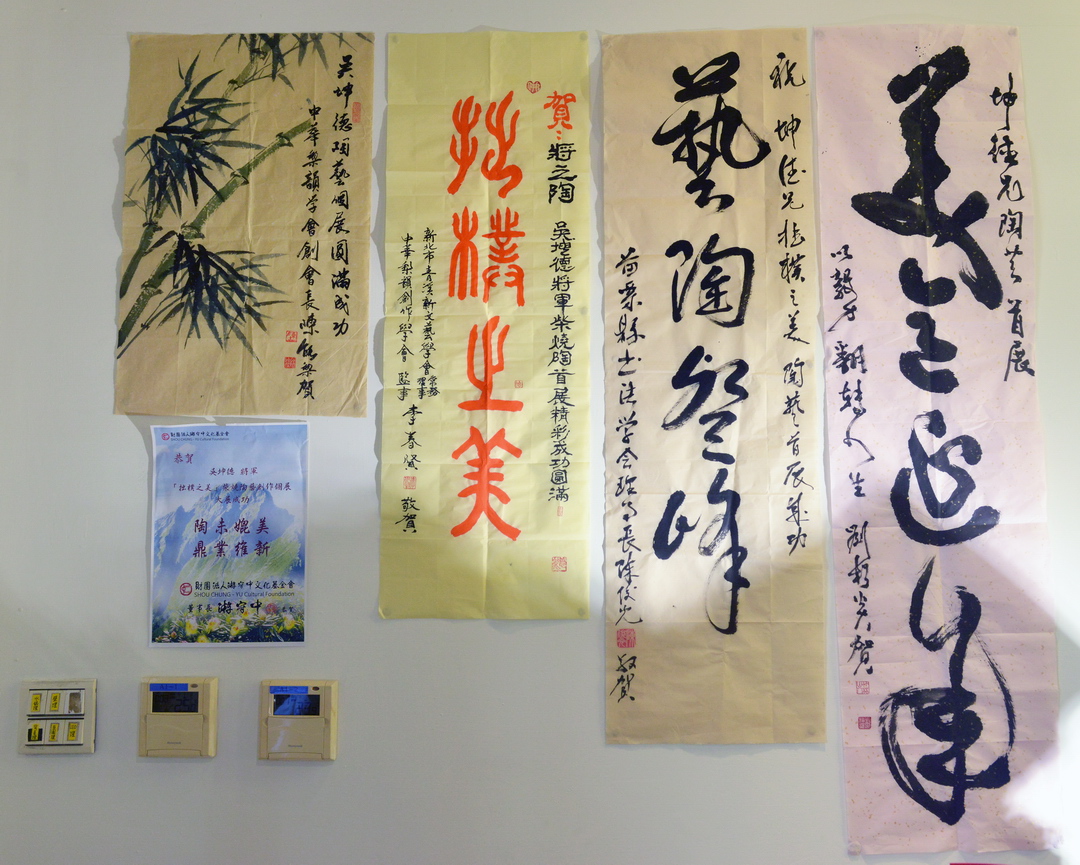 吳坤德陶藝個展圓滿成功
中華梨韻学會創會長陳
賀
財團法人游守中文化基金會
SHOU CHUNG - YU Cultural Foundation
恭賀
吳坤德 將軍
「拙樸之美」柴燒陶藝創作個展
大展成功
媲美
鼎業維新
財團法人游守中文化基金會
SHOU CHUNG - YU Cultural Foundation
董事長 游守中
賀：將之陶 吳坤德將軍柴燒陶首展精彩成功圓滿
拙樸之美
新北市青溪新文藝學會常務理事
中華梨韻創作學會 監事 李春賢 敬賀
祝 坤德兄拙樸之美 陶藝首展成功
藝陶登峰
苗栗縣书法学会理事長陳俊光 敬賀
坤德兄陶艺首展
美
以毅力翻轉人生 劉
賀